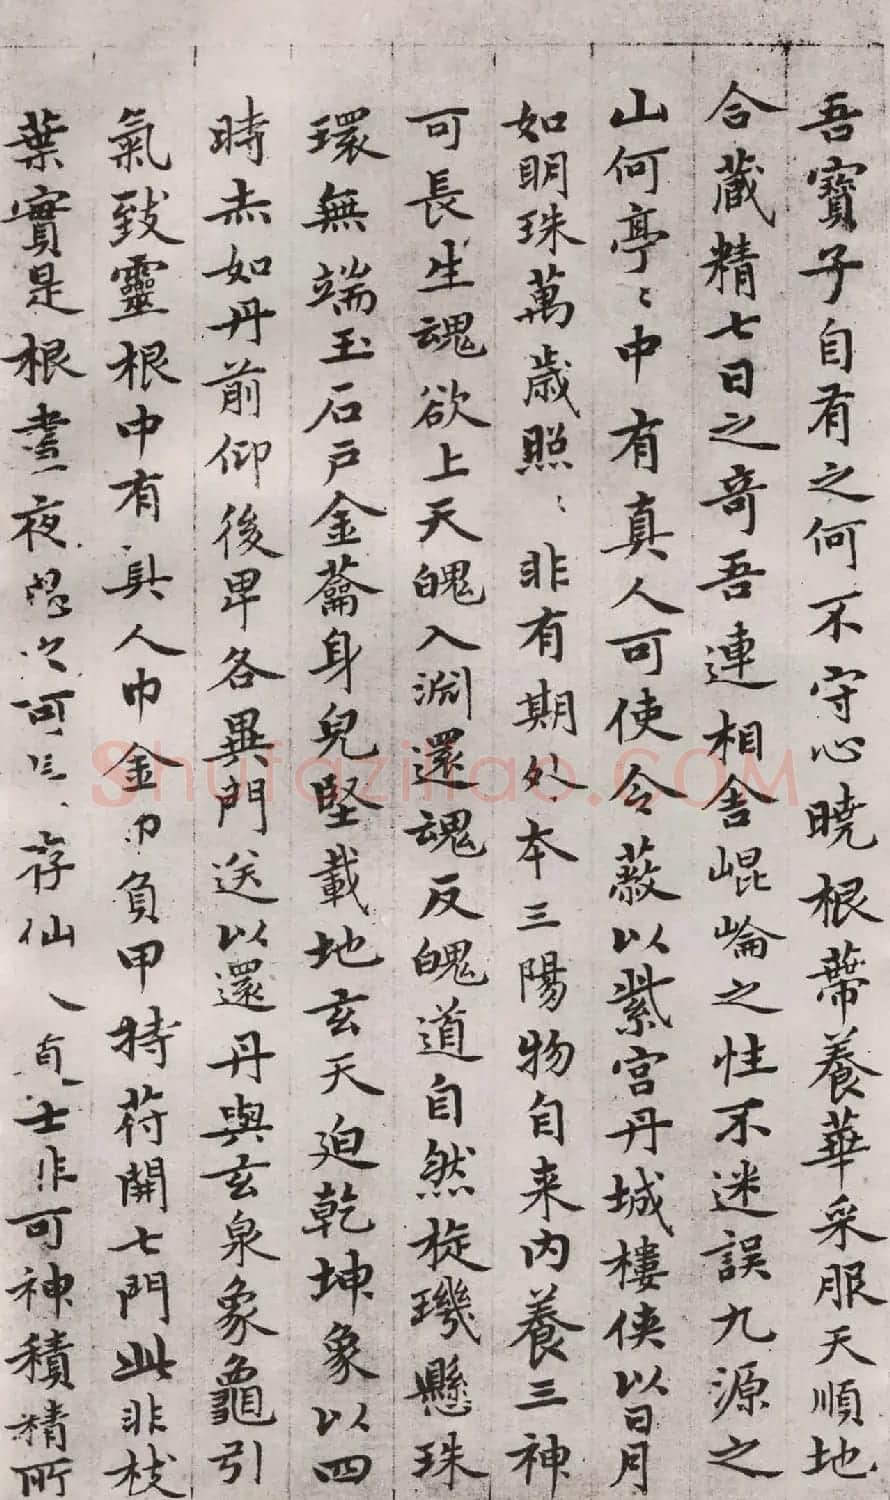 吾寶子自有之何不守心曉根蔕養華采服天順地
合藏精七日之奇吾連相舍崐崘之性不迷誤九源之
山何亭〻中有真人可使令蔽以紫宮丹城樓俠以日月
如明珠萬歲照〻非有期外本三陽物自来內養三神
可長生魂欲上天魄入淵還魂反魄道自然琁璣懸珠
環無端玉石戶金蘥身皃堅載地玄天迫乾坤象以四
時赤如丹前仰後卑各異門送以還丹與玄泉象龜引
氣致靈根中有真人巾金巾負甲持苻開七門此非枝
葉實是根晝夜思之可長存仙人道士非可神積精所
shufaziliao.COM